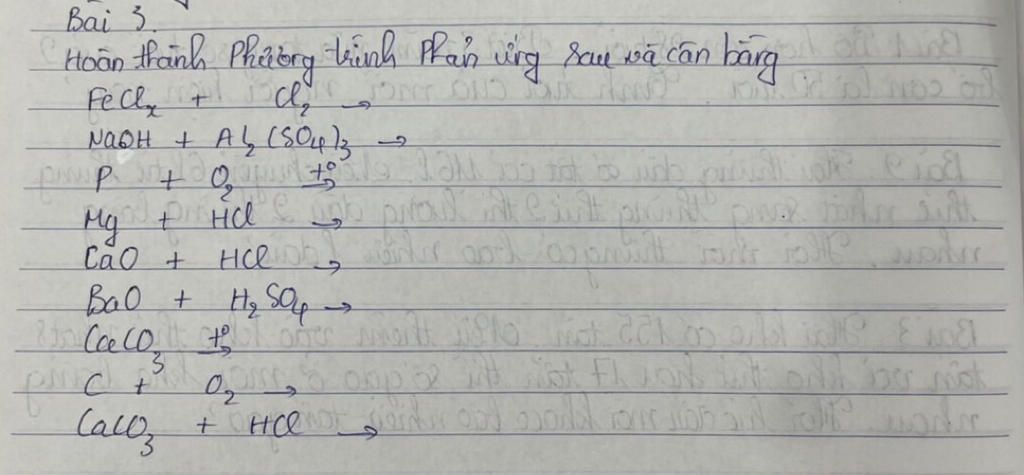 Bài 3.
Hoàn thành Phương trình Phản ứng sau và cân bằng
FeClₓ + Cl₂ →
NaOH + Al₂(SO₄)₃ →
P + O₂ t° →
Mg + HCl →
CaO + HCl →
BaO + H₂SO₄ →
CaCO₃ t° →
C + O₂ →
CaCO₃ + HCl →